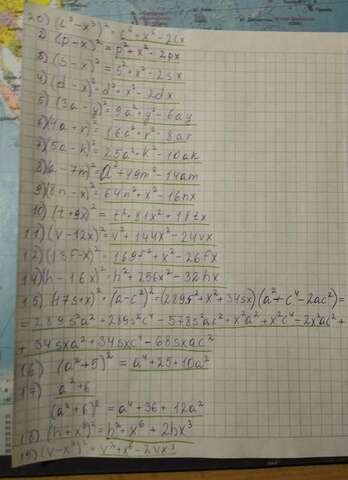 20) (c³-x³)²=c⁶+x⁶-2cx
2) (p-x)²=p²+x²-2px
3) (s-x)²=s²+x²-2sx
4) (d-x)²=d²+x²-2dx
5) (3a-y)²=9a²+y²-6ay
6) (4a-r)²=16a²+r²-8ar
7) (5a-k)²=25a²+k²-10ak
8) (a-7m)²=a²+49m²-14am
9) (8n-x)²=64n²+x²-16nx
10) (t+9x)²=t²+81x²+18tx
11) (v-12x)²=v²+144x²-24vx
12) (13f-x)²=169f²+x²-26fx
14) (h-16x)²=h²+256x²-32hx
15) (17s+x)²·(a-c²)²=(289s²+x²+34sx)(a²+c⁴-2ac²)=
=289s²a²+289s²c⁴-578s²ac²+x²a²+x²c⁴-2x²ac²+
+34sxa²+34sxc⁴-68sxac²
16) (a²+5)²=a⁴+25+10a²
17) a²+6
(a²+6)²=a⁴+36+12a²
18) (h+x³)²=h²+x⁶+2hx³
19) (v-x³)²=v²+x⁶-2vx³